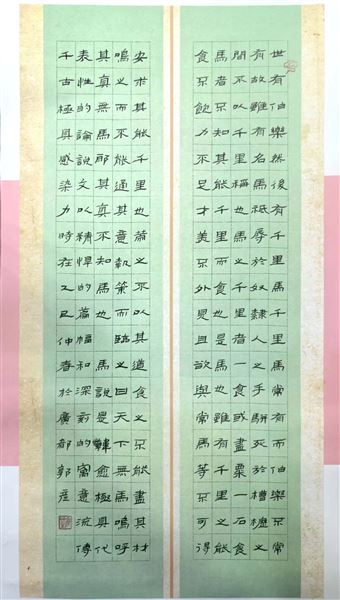 世有伯樂然後有千里馬千里馬常有而伯樂不常
有故雖有名馬祇辱於奴隸人之手駢死於槽櫪之
間不以千里稱也馬之千里者一食或盡粟一石食
馬者不知其能千里而食也是馬也雖有千里之能
食不飽力不足才美不外見且欲與常馬等不可得
安求其能千里也策之不以其道食之不能盡其材
鳴之而不能通其意執策而臨之曰天下無馬嗚呼
其真無馬邪其真不知馬也馬說是韓愈極具代
表性的論說文以精悍的篇幅和深刻的寓意流傳
千古極具感染力時在乙巳仲春於廣都郭